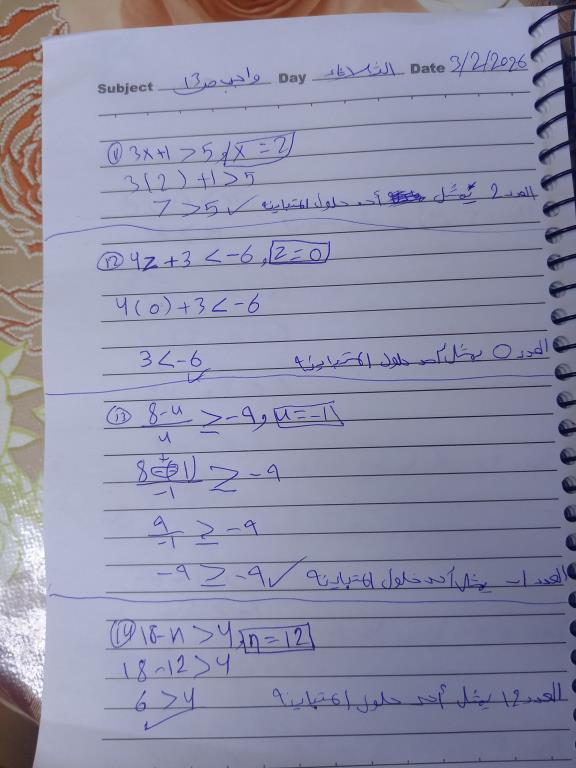 Subject واجب ص13 Day الثلاثاء Date 3/2/2026
⑪ 3x+1 > 5, x = 2
3(2)+1>5
7 >5 ✓ العدد 2 يمثل أحد حلول المتباينة
⑫ 4z+3 < -6, z=0
4(0)+3 < -6
3 < -6 ✓ العدد 0 يمثل أحد حلول المتباينة
⑬ 8-u/u ≥ -9, u=-1
8+1/-1 ≥ -9
9/-1 ≥ -9
-9 ≥ -9 ✓ العدد 1- يمثل أحد حلول المتباينة
⑭ 18-n > 4, n=12
18-12>4
6 >4 ✓ العدد 12 يمثل أحد حلول المتباينة